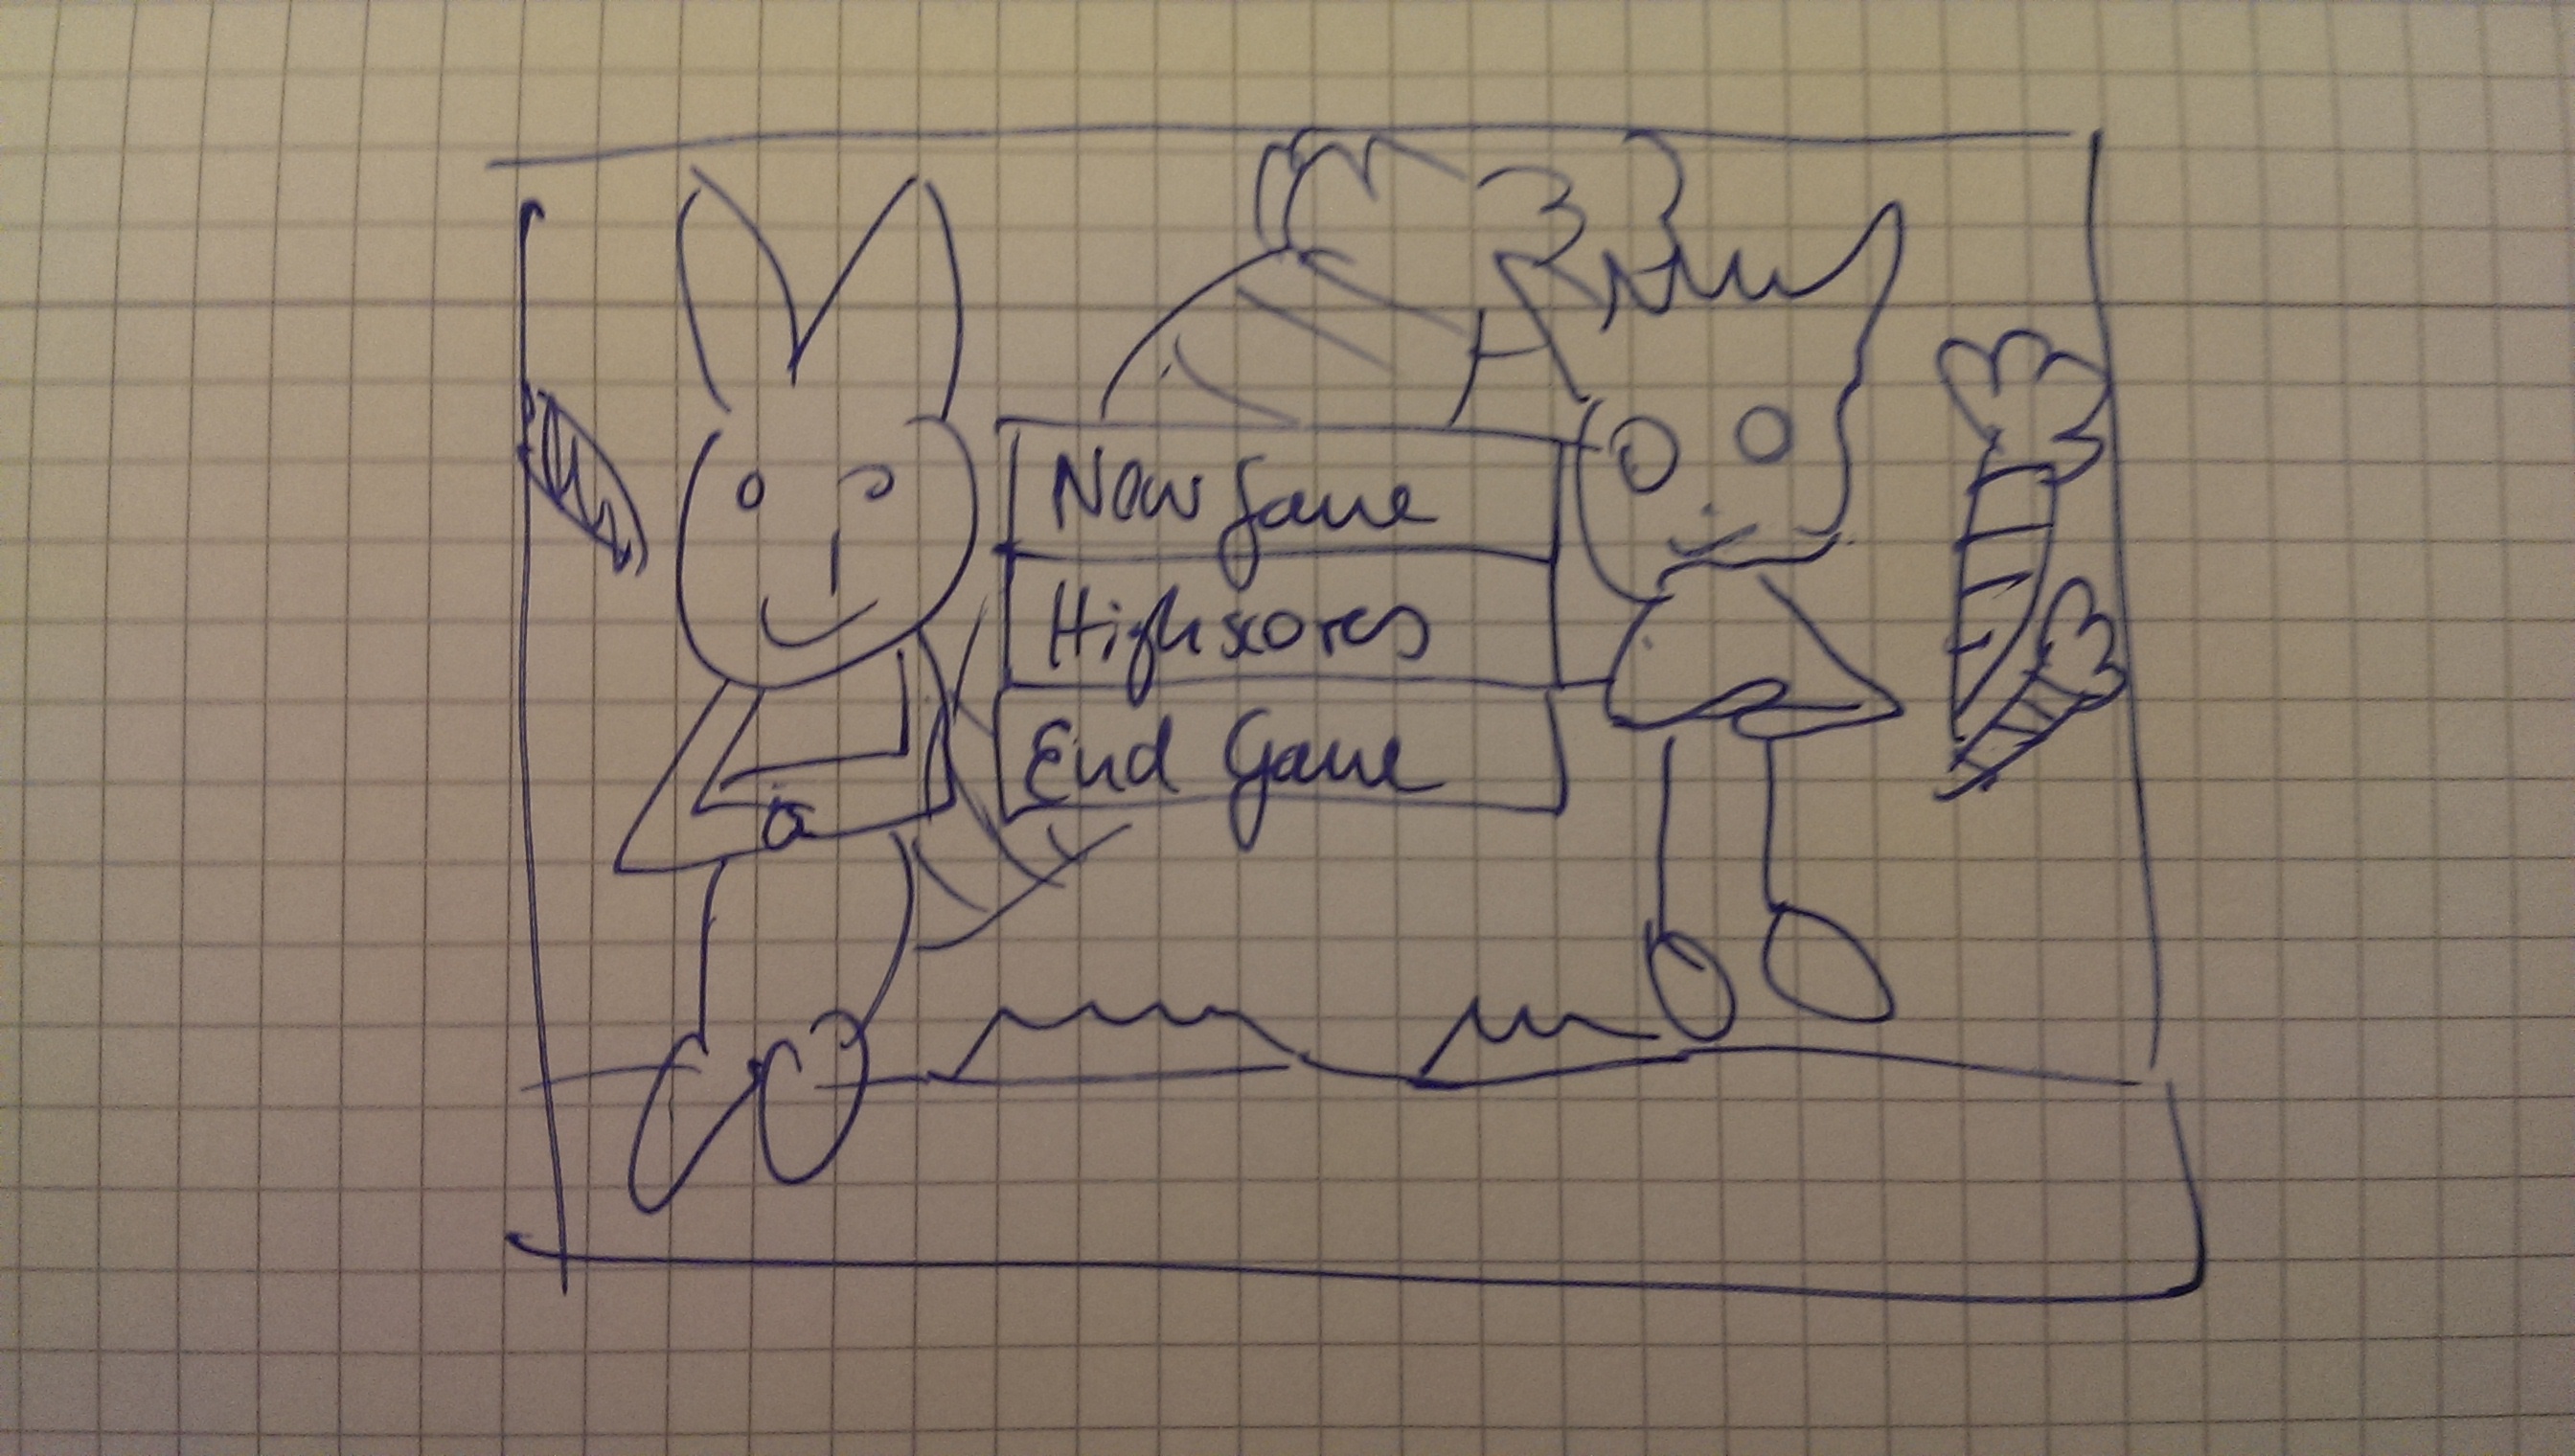 New Game
Highscores
End Game